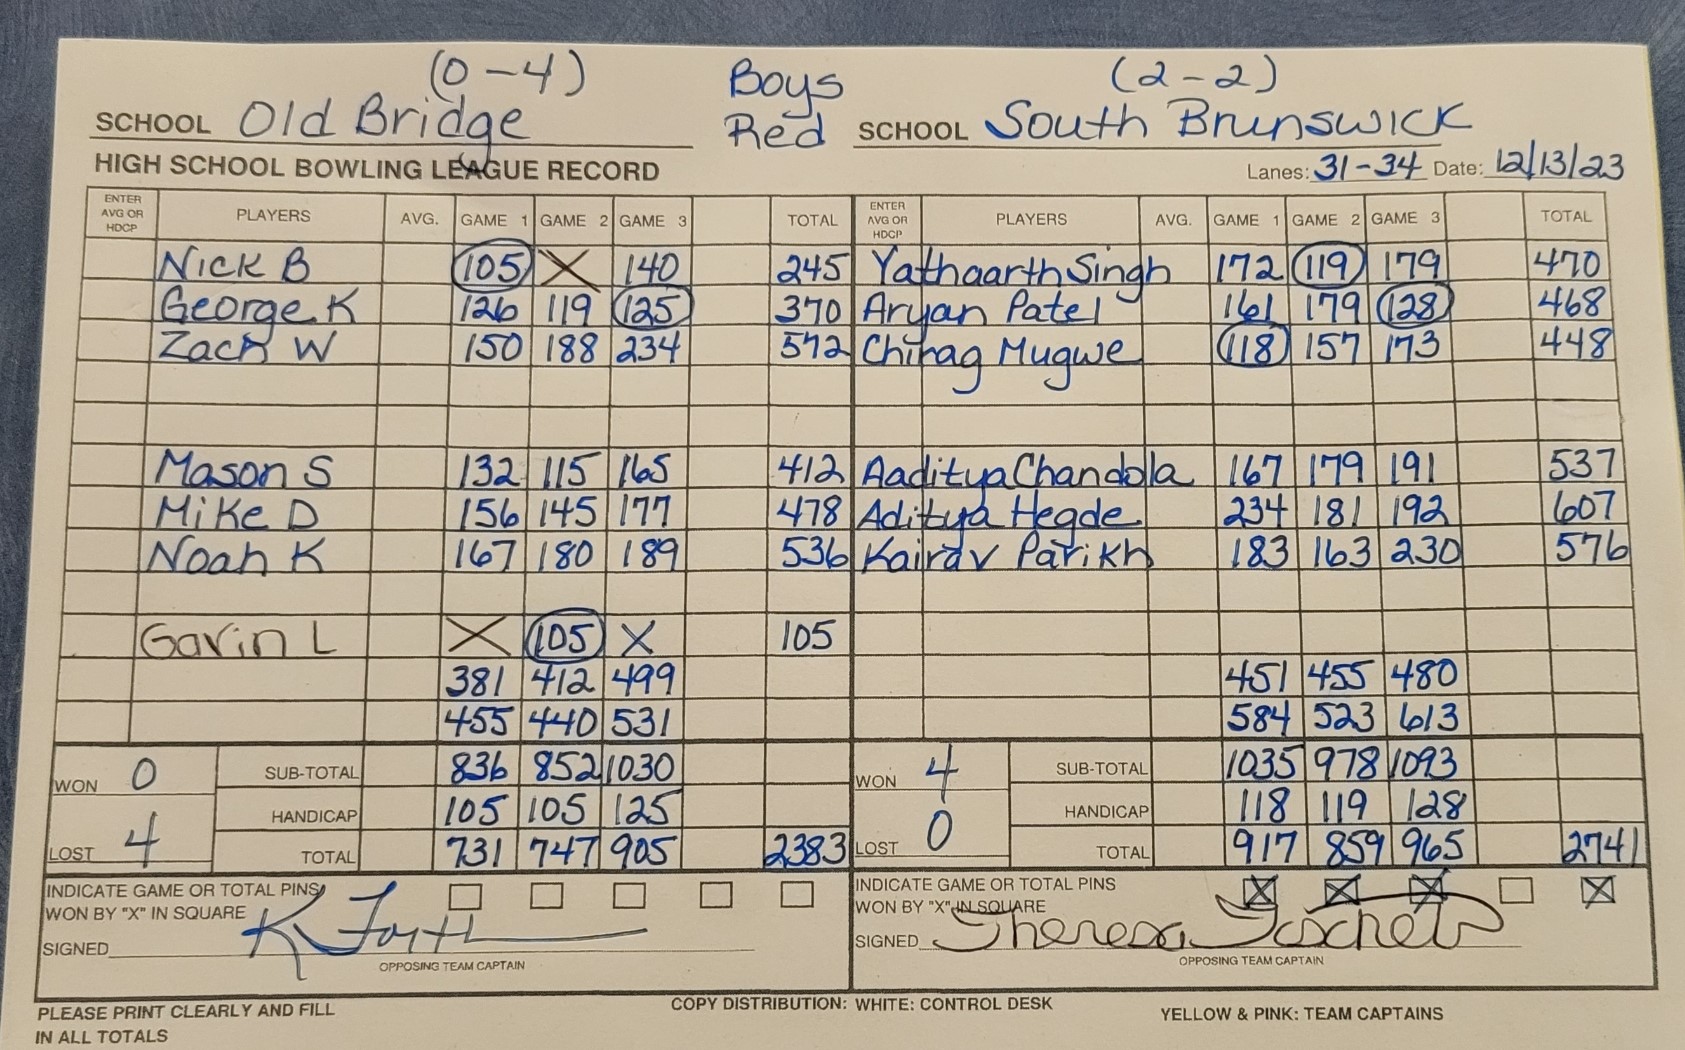 (0-4) Boys (2-2)
SCHOOL Old Bridge Red SCHOOL South Brunswick
HIGH SCHOOL BOWLING LEAGUE RECORD Lanes: 31-34 Date: 12/13/23
ENTER AVG OR HDCP PLAYERS AVG. GAME 1 GAME 2 GAME 3 TOTAL ENTER AVG OR HDCP PLAYERS AVG. GAME 1 GAME 2 GAME 3 TOTAL
Nick B 105 X 140 245 Yathaarth Singh 172 119 179 470
George K 126 119 125 370 Aryan Patel 161 179 128 468
Zach W 150 188 234 572 Chirag Mugwe 118 157 173 448
Mason S 132 115 165 412 Aaditya Chandola 167 179 191 537
Mike D 156 145 177 478 Aditya Hegde 234 181 192 607
Noah K 167 180 189 536 Kairav Parikh 183 163 230 576
Gavin L X 105 X 105
381 412 499 451 455 480
455 440 531 584 523 613
WON 0 SUB-TOTAL 836 852 1030 WON 4 SUB-TOTAL 1035 978 1093
HANDICAP 105 105 125 HANDICAP 118 119 128
LOST 4 TOTAL 731 747 905 2383 LOST 0 TOTAL 917 859 965 2741
INDICATE GAME OR TOTAL PINS INDICATE GAME OR TOTAL PINS X X X X
WON BY "X" IN SQUARE WON BY "X" IN SQUARE
SIGNED K SIGNED Theresa
OPPOSING TEAM CAPTAIN OPPOSING TEAM CAPTAIN
PLEASE PRINT CLEARLY AND FILL COPY DISTRIBUTION: WHITE: CONTROL DESK YELLOW & PINK: TEAM CAPTAINS
IN ALL TOTALS